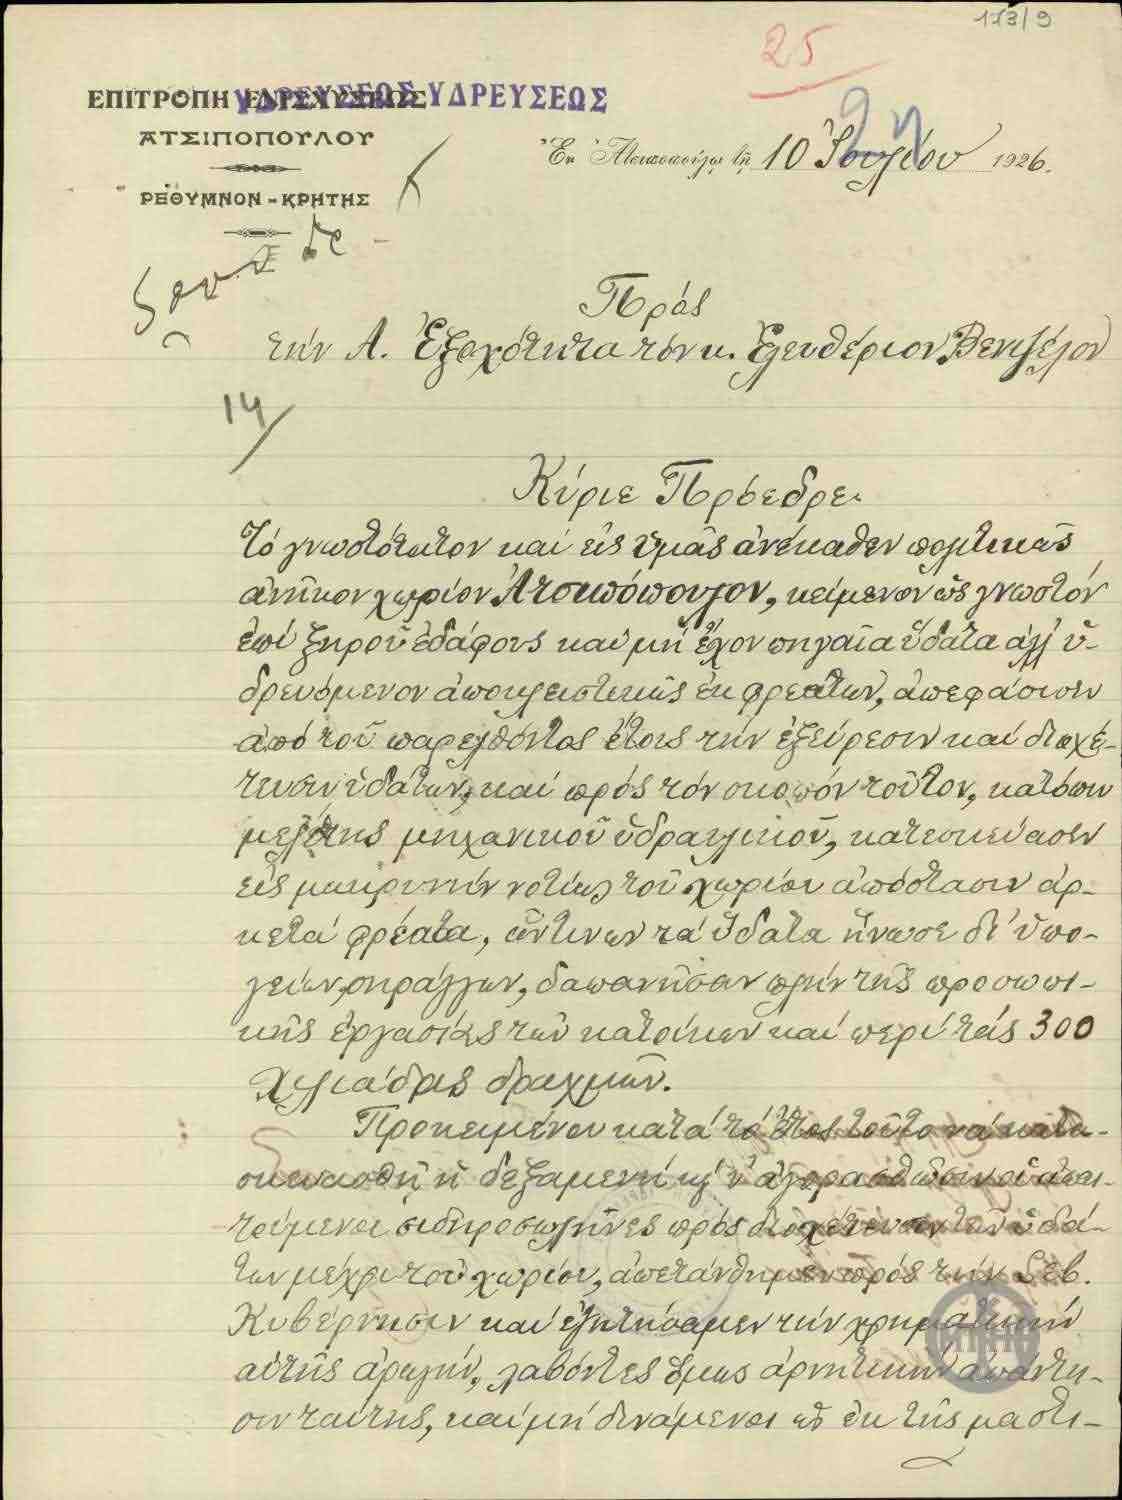 173/9
25
ΕΠΙΤΡΟΠΗ ΕΝΙΣΧΥΣΕΩΣ ΥΔΡΕΥΣΕΩΣ
ΑΤΣΙΠΟΠΟΥΛΟΥ
ΡΕΘΥΜΝΟΝ - ΚΡΗΤΗΣ
Ἐν Ἀτσιποπούλῳ τῇ 10 Ἰουλίου 1926.
Πρός
τήν Α. Ἐξοχότητα τόν κ. Ἐλευθέριον Βενιζέλον
14
Κύριε Πρόεδρε.
Τό γνωστότατον καί εἰς ὑμᾶς ἀνέκαθεν πολιτικῶς
ἀνῆκον χωρίον Ἀτσιπόπουλον, κείμενον ὡς γνωστόν
ἐπί ξηροῦ ἐδάφους καί μή ἔχον πηγαῖα ὕδατα ἀλλ' ὑ-
δρευόμενον ἀποκλειστικῶς ἐκ φρεάτων, ἀπεφάσισεν
ἀπό τοῦ παρελθόντος ἔτους τήν ἐξεύρεσιν καί διοχέ-
τευσιν ὑδάτων, καί πρός τόν σκοπόν τοῦτον, κατόπιν
μελέτης μηχανικοῦ ὑδραυλικοῦ, κατεσκεύασεν
εἰς μακρυνήν νοτίως τοῦ χωρίου ἀπόστασιν ἀρ-
κετά φρέατα, ὧντινων τά ὕδατα ἥνωσε δι' ὑπο-
γείων σηράγγων, δαπανῆσαν πλήν τῆς προσωπι-
κῆς ἐργασίας τῶν κατοίκων καί περί τάς 300
χιλιάδας δραχμῶν.
Προκειμένου κατά τό ἔτος τοῦτο νά κατα-
σκευασθῇ ἡ δεξαμενή κι' ν' ἀγορασθῶσιν οἱ ἀπαι-
τούμενοι σιδηροσωλῆνες πρός διοχέτευσιν τῶν ὑδά-
των μέχρι τοῦ χωρίου, ἀπετάνθημεν πρός τήν Σεβ.
Κυβέρνησιν καί ἐζητήσαμεν τήν χρηματικήν
αὐτῆς ἀρωγήν, λαβόντες ὅμως ἀρνητικήν ἀπάντη-
σιν ταύτης, καί μή δυνάμενοι ὡς ἐκ τῆς μαστι-